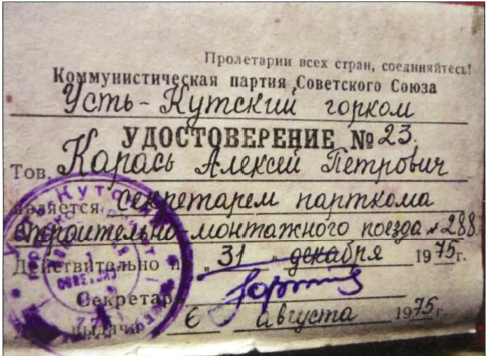 Пролетарии всех стран, соединяйтесь!
Коммунистическая партия Советского Союза
Усть-Кутский горком
УДОСТОВЕРЕНИЕ № 23.
Тов. Карась Алексей Петрович
является секретарем парткома
строительно-монтажного поезда № 288.
Действительно п „31 “ декабря 1975г.
Секретар
выдачи 6 августа 1975г.